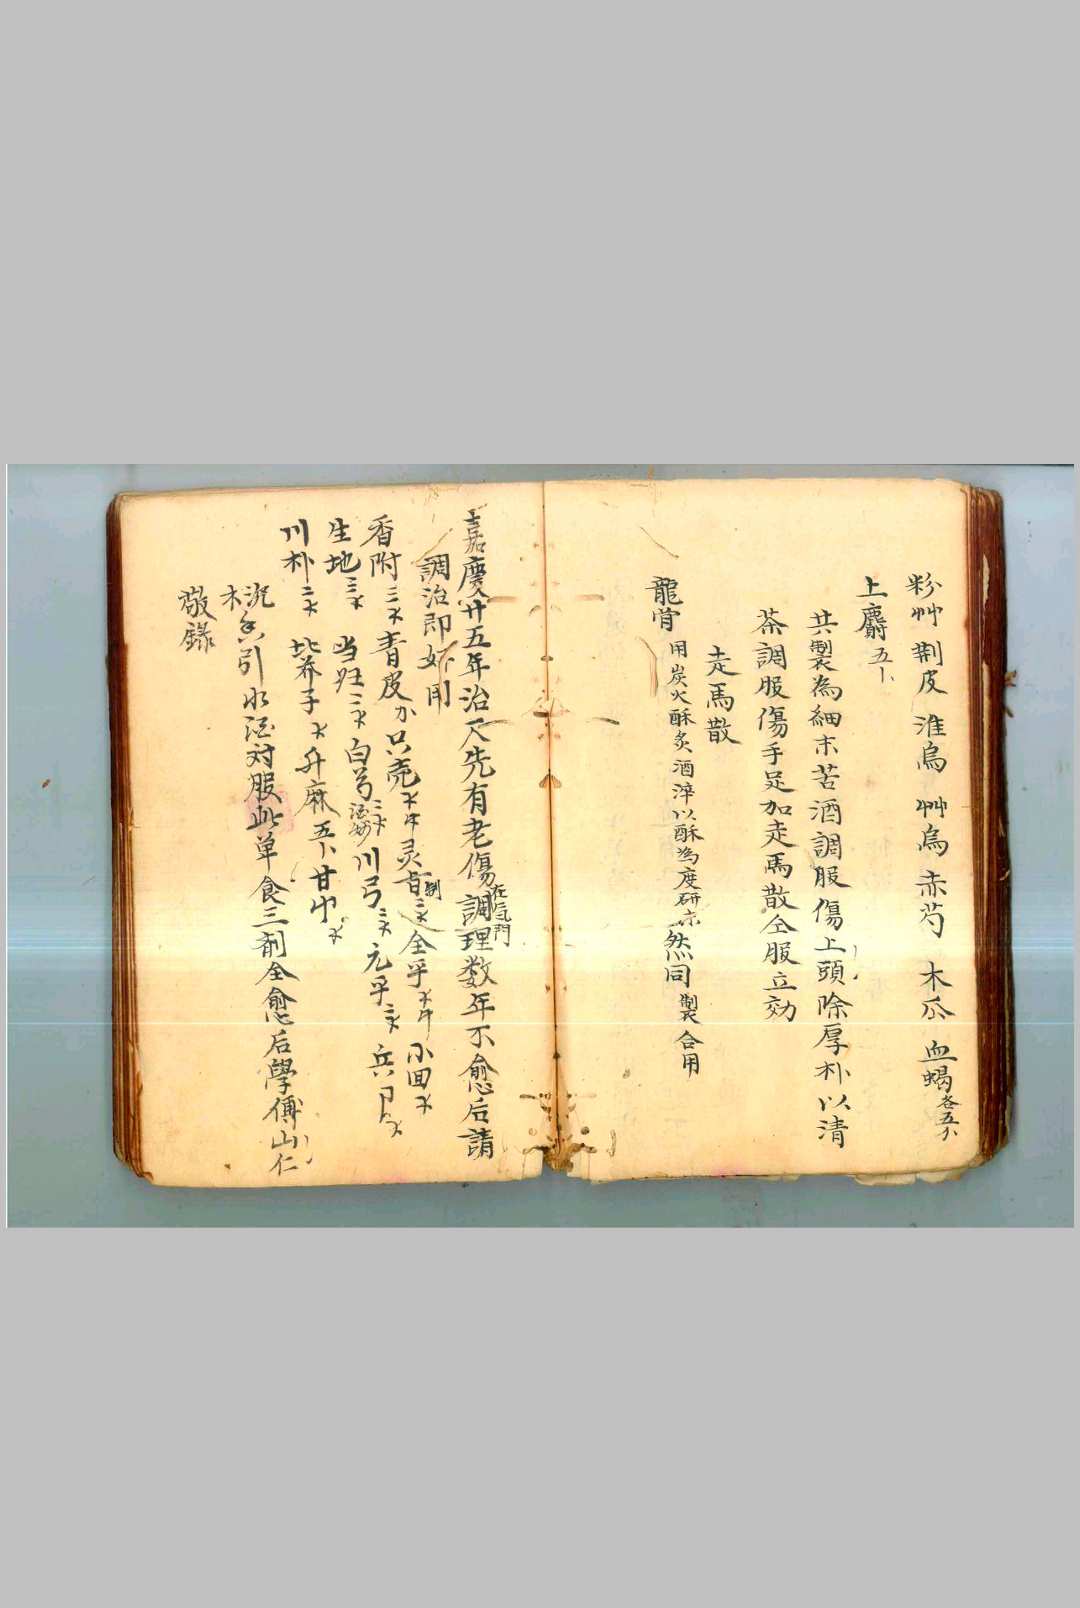 粉艸 荆皮 淮烏 艸烏 赤芍 木瓜 血蝎各五卜
上麝五卜
共製為細末苦酒調服傷上頭除厚朴以清
茶調服傷手足加走馬散仝服立効
走馬散
龍骨 用炭火酥炙酒淬以酥為度研末然同製合用
嘉慶廿五年治尺先有老傷在氣門調理数年不愈后請
調治即好用
香附 三 青皮 只壳 灵 制 全乎 小回
生地 三 当归 三 白芍 三 酒炒 川弓 三 元乎 三
川朴 二 芥子 升麻 五卜 甘
沉香 木 引水酒对服此单食三剂全愈后學傅山仁
敬錄